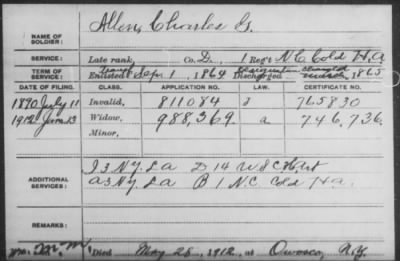 Allen, Charles G.
NAME OF SOLDIER:
SERVICE: Late rank, Co. D, 1 Reg't N.C. Cold H.A.
TERM OF SERVICE: Enlisted Sep. 1, 1864 Discharged 1865
DATE OF FILING. CLASS. APPLICATION NO. LAW. CERTIFICATE NO.
1890 July 11 Invalid, 811084 765830
1912 Widow, 988,369. a 746,736.
Minor,
ADDITIONAL SERVICES: I 3 N.Y. L A D 14 U S C H Art
A 3 N.Y. L A B 1 N.C. Cold H A.
REMARKS:
Died May 28, 1912, at Owasco, N.Y.